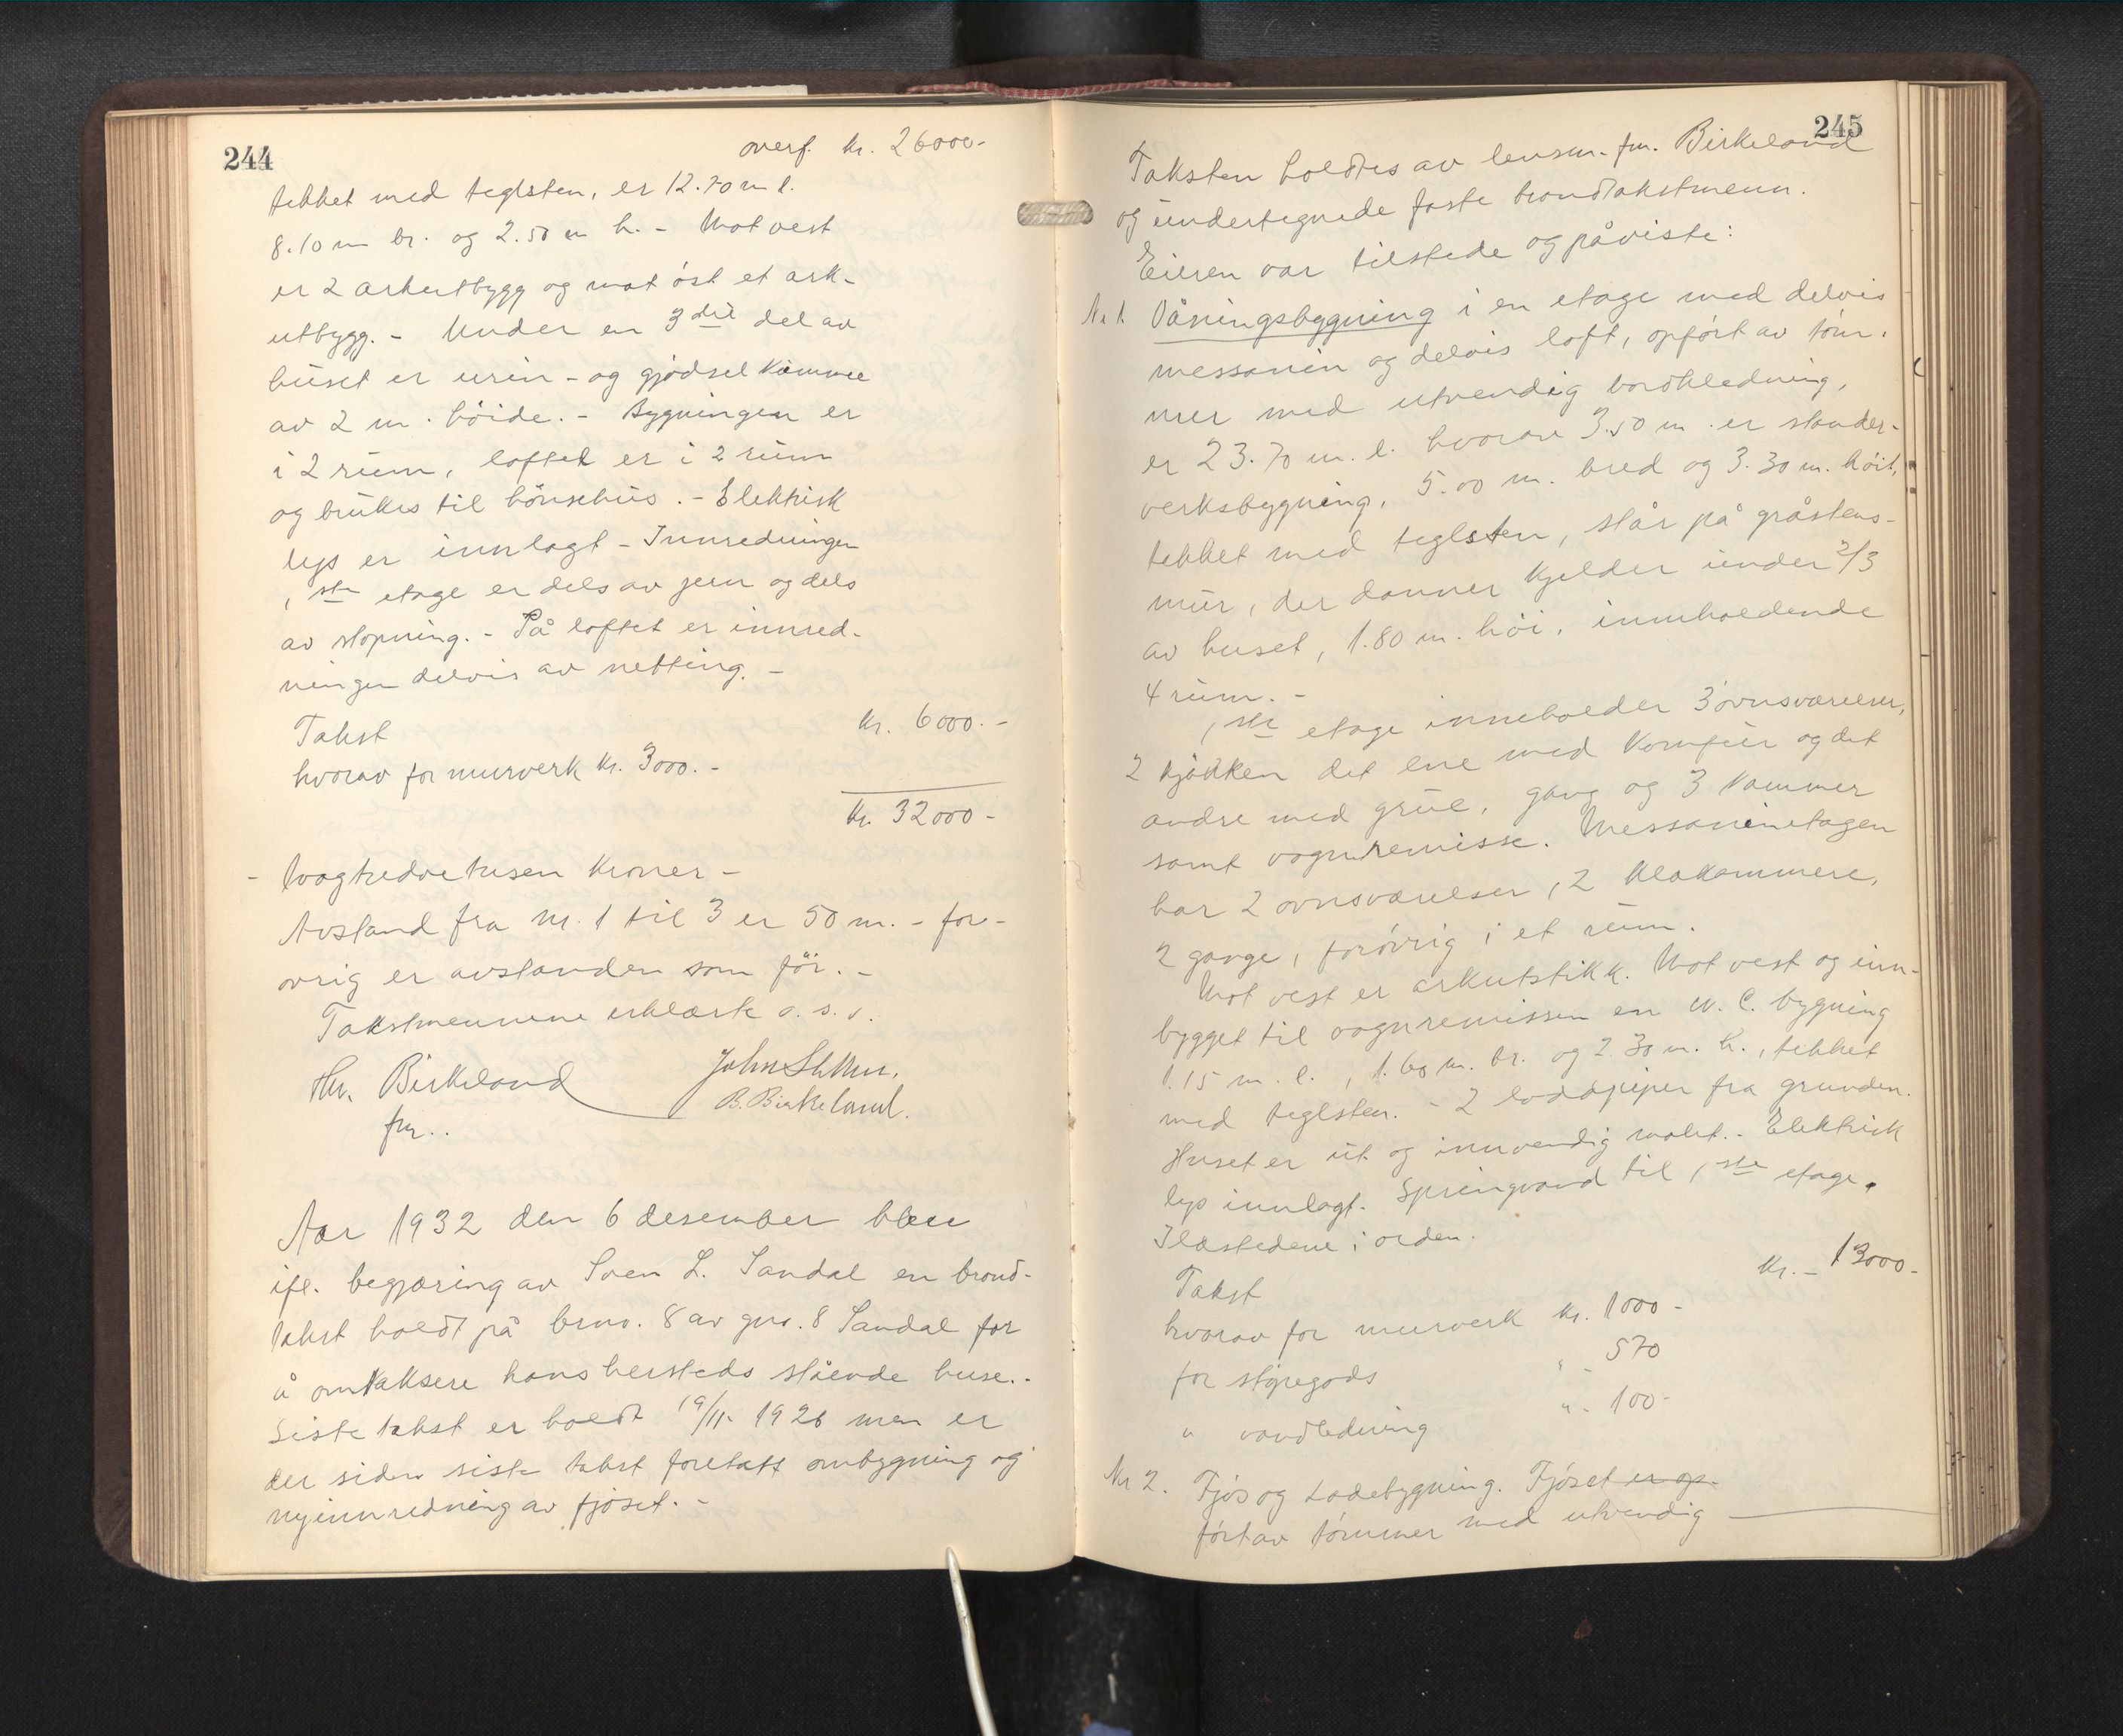 244
overf. kr. 26000-
tekket med teglsten, er 12.70 m l.
8.10 m br. og 2.50 m h. - Mot vest
er 2 arkutbygg og mot öst et ark-
utbygg. - Under en 3die del av
huset er urin- og gjödselkümmer
av 2 m. höide. - Bygningen er
i 2 rüm, loftet er i 2 rüm
og brukes til hönsehüs. - Elektrisk
lys er innlagt - Innredningen
1ste etage er dels av jern og dels
av stopning. - På loftet er innred-
ningen delvis av netting. -
Takst kr. 6000.-
hvorav for murverk kr. 3000.-
kr. 32000-
- tvogtredve tusen kroner -
Avstand fra nr. 1 til 3 er 50 m. - for-
ovrig er avstanden som för. -
Takstmennene erklærte o. s. v.
Hn. Birkeland
fm..
B. Birkeland.
Aar 1932 den 6 desember blev
ifl. begjæring av Sven L. Sandal en brand-
takst holdt på brno. 8 av gno. 8 Sandal for
å omtaksere hans hersteds stående huse.-
Siste takst er holdt 19/11- 1926 men er
der siden siste takst foretatt ombygning og
nyinnredning av fjöset. -
245
Taksten holdtes av lensm. fm. Birkeland
og undertegnede faste brandtakstmenn.
Eieren var tilstede og påviste:
No 1. Våningsbygning i en etage med delvis
messanin og delvis loft, opfört av töm-
mer med utvendig bordkledning,
er 23.70 m. l. hvorav 3.50 m. er stender-
verksbygning, 5.00 m. bred og 3.30 m. höit,
tekket med teglsten, står på gråstens-
mür, der danner kjelder ünder 2/3
av huset, 1.80 m. höi, inneholdende
4 rüm. -
1ste etage inneholder 3 ovnsværelser,
2 kjökken det ene med komfür og det
andre med grüe, gang og 3 kammer
samt vognremisse. Messaninetagen
har 2 ovnsværelser, 2 klekammere,
2 gange, forövrig i et rüm.
Mot vest er arkutstikk. Mot vest og inn-
bygget til vognremissen en W. C. bygning
1.15 m. l., 1.60 m. br. og 2.30 m. h., tekket
med teglsten. - 2 loddpiper fra grunden.
Huset er üt og innvendig malt. - Elektrisk
lys innlagt. Springvand til 1ste etage.
Ildstedene i orden.
Takst kr. - 13000-
hvorav for murverk kr. 1000-
for stöpegods " - 570
" vandledning " - 100-
Nr 2. Fjös og Ladebygning. Fjöset er op-
fört av tömmer med utvendig